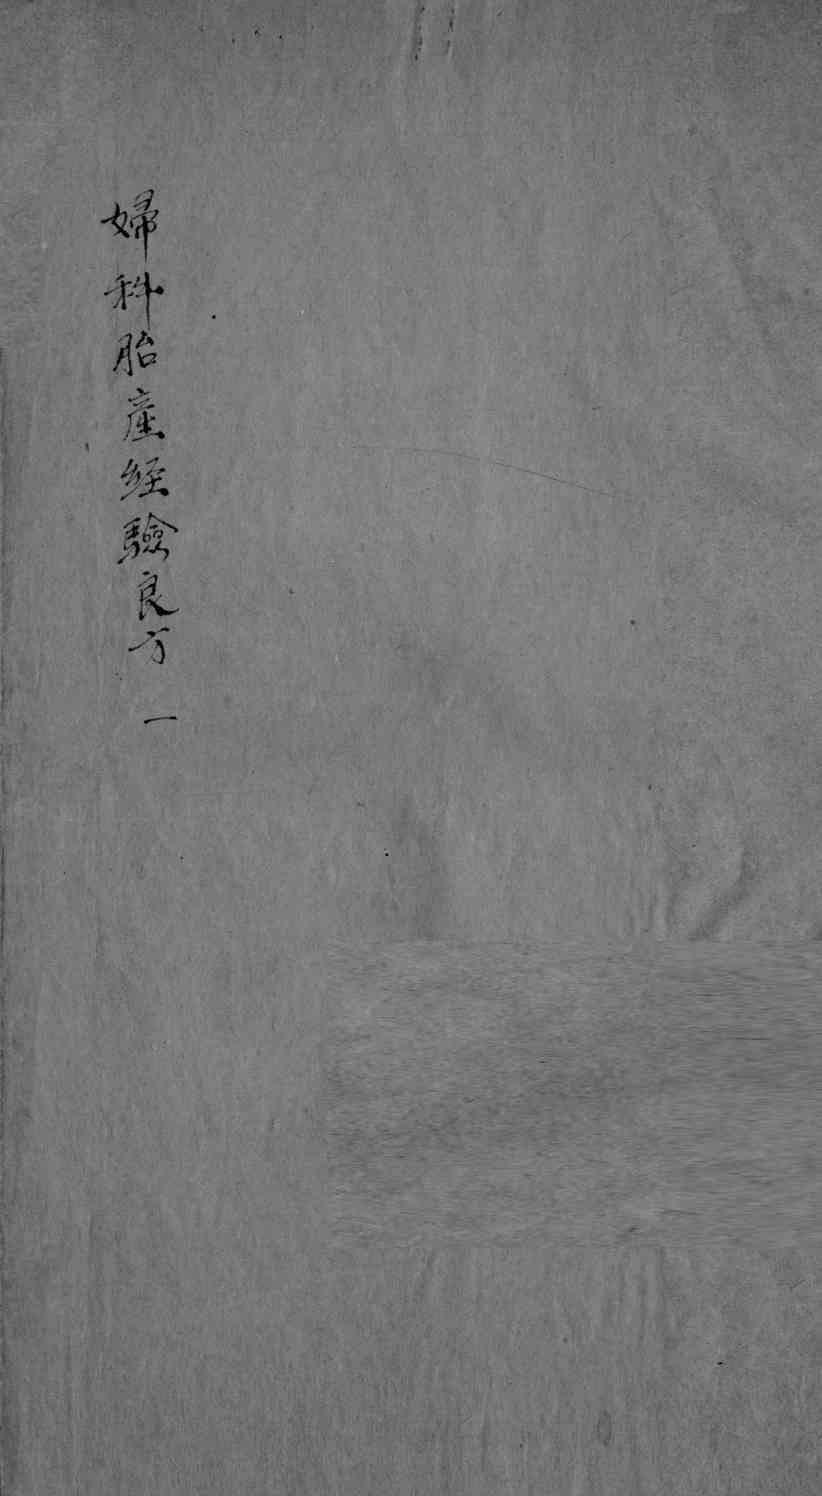 婦科胎產経驗良方 一